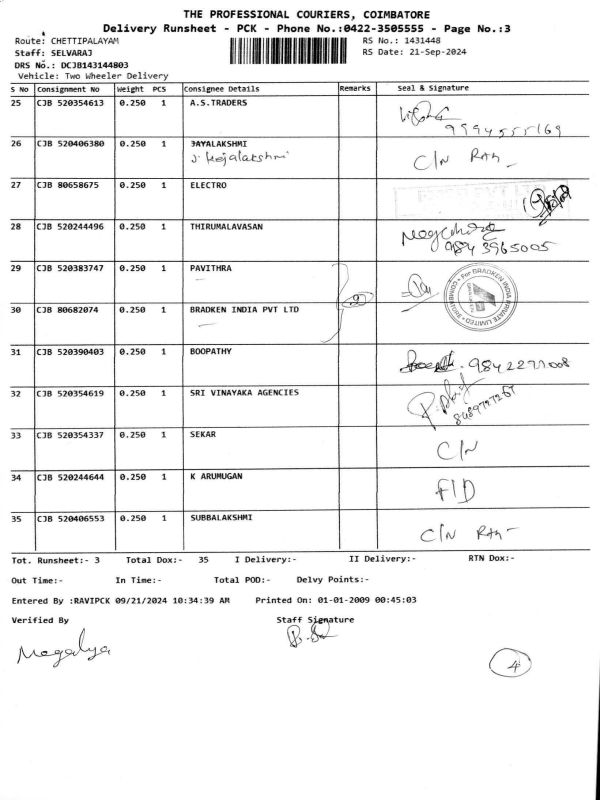 THE PROFESSIONAL COURIERS, COIMBATORE
Delivery Runsheet - PCK - Phone No.:0422-3505555 - Page No.:3
Route: CHETTIPALAYAM RS No.: 1431448
Staff: SELVARAJ RS Date: 21-Sep-2024
DRS No.: DCJB143144803
Vehicle: Two Wheeler Delivery
S No Consignment No Weight PCS Consignee Details Remarks Seal & Signature
25 CJB 520354613 0.250 1 A.S.TRADERS
9994555169
26 CJB 520406380 0.250 1 JAYALAKSHMI
C/N
27 CJB 80658675 0.250 1 ELECTRO
28 CJB 520244496 0.250 1 THIRUMALAVASAN
9843965005
29 CJB 520383747 0.250 1 PAVITHRA
30 CJB 80682074 0.250 1 BRADKEN INDIA PVT LTD
2
For BRADKEN INDIA PRIVATE LIMITED
COIMBATORE
31 CJB 520390403 0.250 1 BOOPATHY 9842271008
32 CJB 520354619 0.250 1 SRI VINAYAKA AGENCIES
33 CJB 520354337 0.250 1 SEKAR
C/N
34 CJB 520244644 0.250 1 K ARUMUGAN
F/D
35 CJB 520406553 0.250 1 SUBBALAKSHMI
C/N
Tot. Runsheet:- 3 Total Dox:- 35 I Delivery:- II Delivery:- RTN Dox:-
Out Time:- In Time:- Total POD:- Delvy Points:-
Entered By :RAVIPCK 09/21/2024 10:34:39 AM Printed On: 01-01-2009 00:45:03
Verified By Staff Signature
4